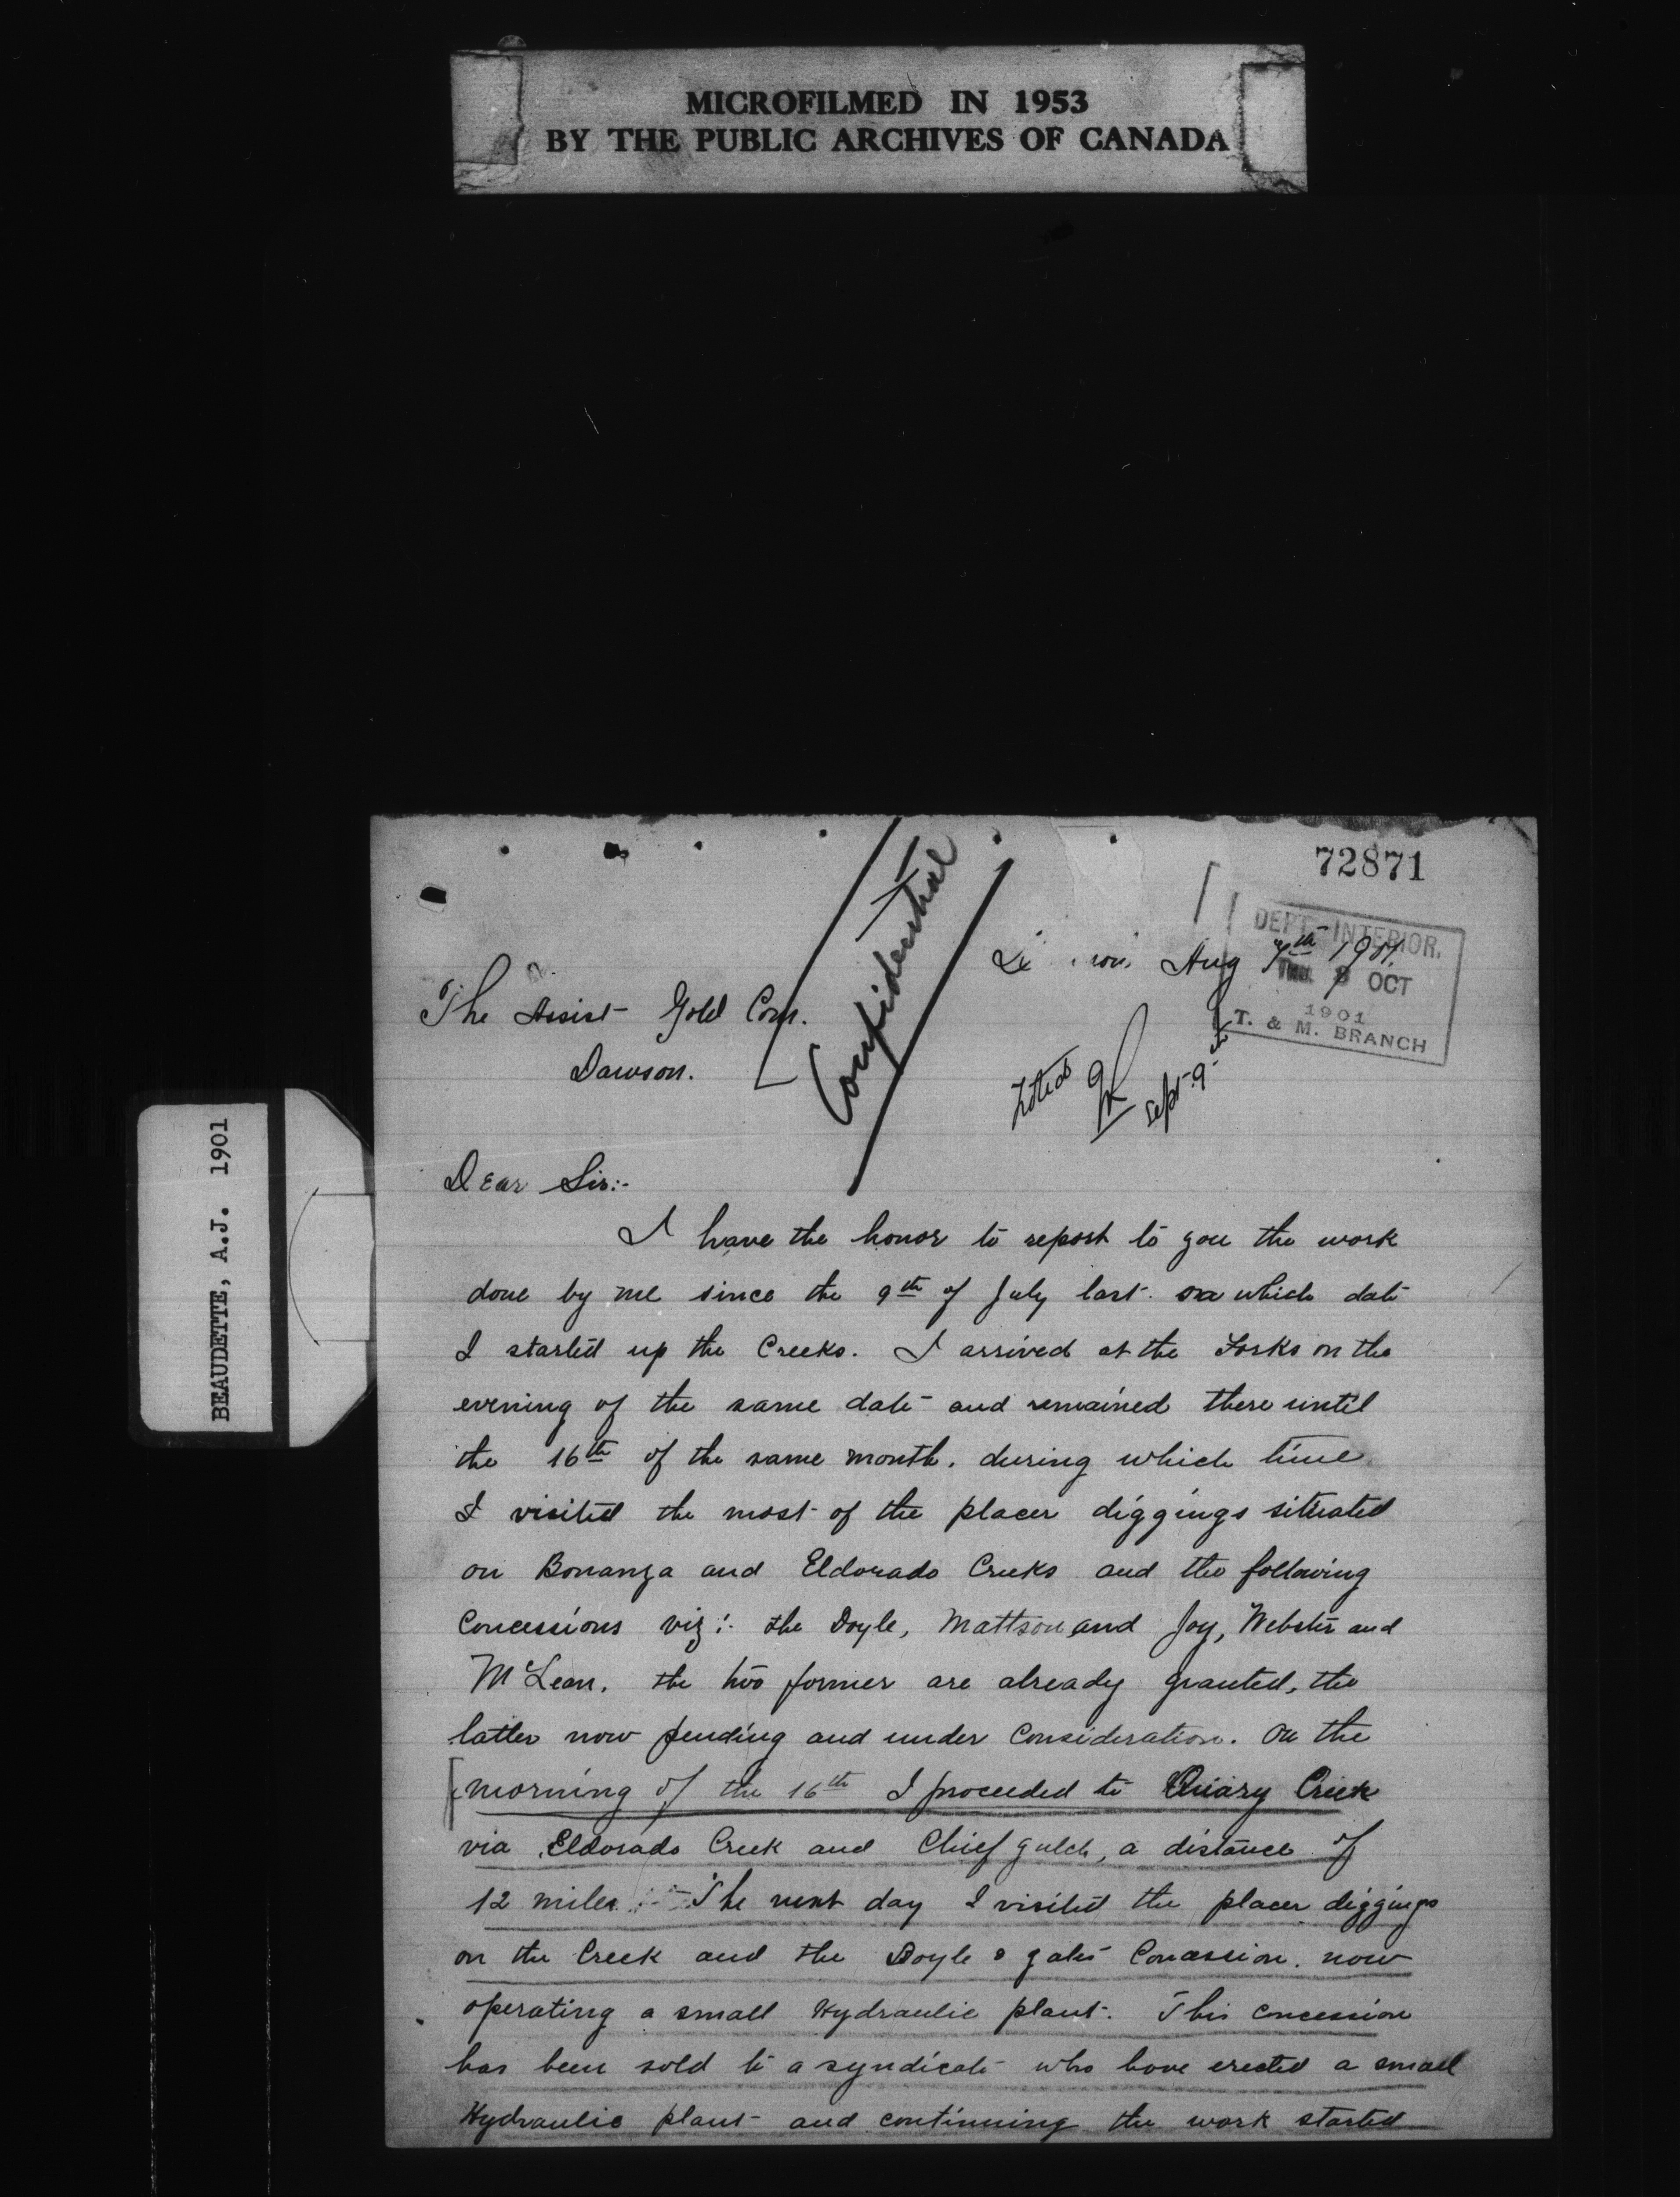 MICROFILMED IN 1953
BY THE PUBLIC ARCHIVES OF CANADA
BEAUDETTE, A.J. 1901
72871
Confidential
DEPT. INTERIOR.
8 OCT
1901
T. & M. BRANCH
Aug 7th 1901.
The Assist Gold Com.
Dawson.
Noted
Sept. 9
Dear Sir:-
I have the honor to report to you the work
done by me since the 9th of July last. on which date
I started up the Creeks. I arrived at the Forks on the
evening of the same date and remained there until
the 16th of the same month. during which time
I visited the most of the placer diggings situated
on Bonanza and Eldorado Creeks and the following
Concessions viz:- the Doyle, Mattson and Joy, Webster and
McLean. the two former are already granted, the
latter now pending and under Consideration. On the
morning of the 16th I proceeded to Creek
via Eldorado Creek and Chief gulch, a distance of
12 miles. The next day I visited the placer diggings
on the Creek and the Doyle & gates Concession. now
operating a small Hydraulic plant. This concession
has been sold to a syndicate who have erected a small
Hydraulic plant and continuing the work started